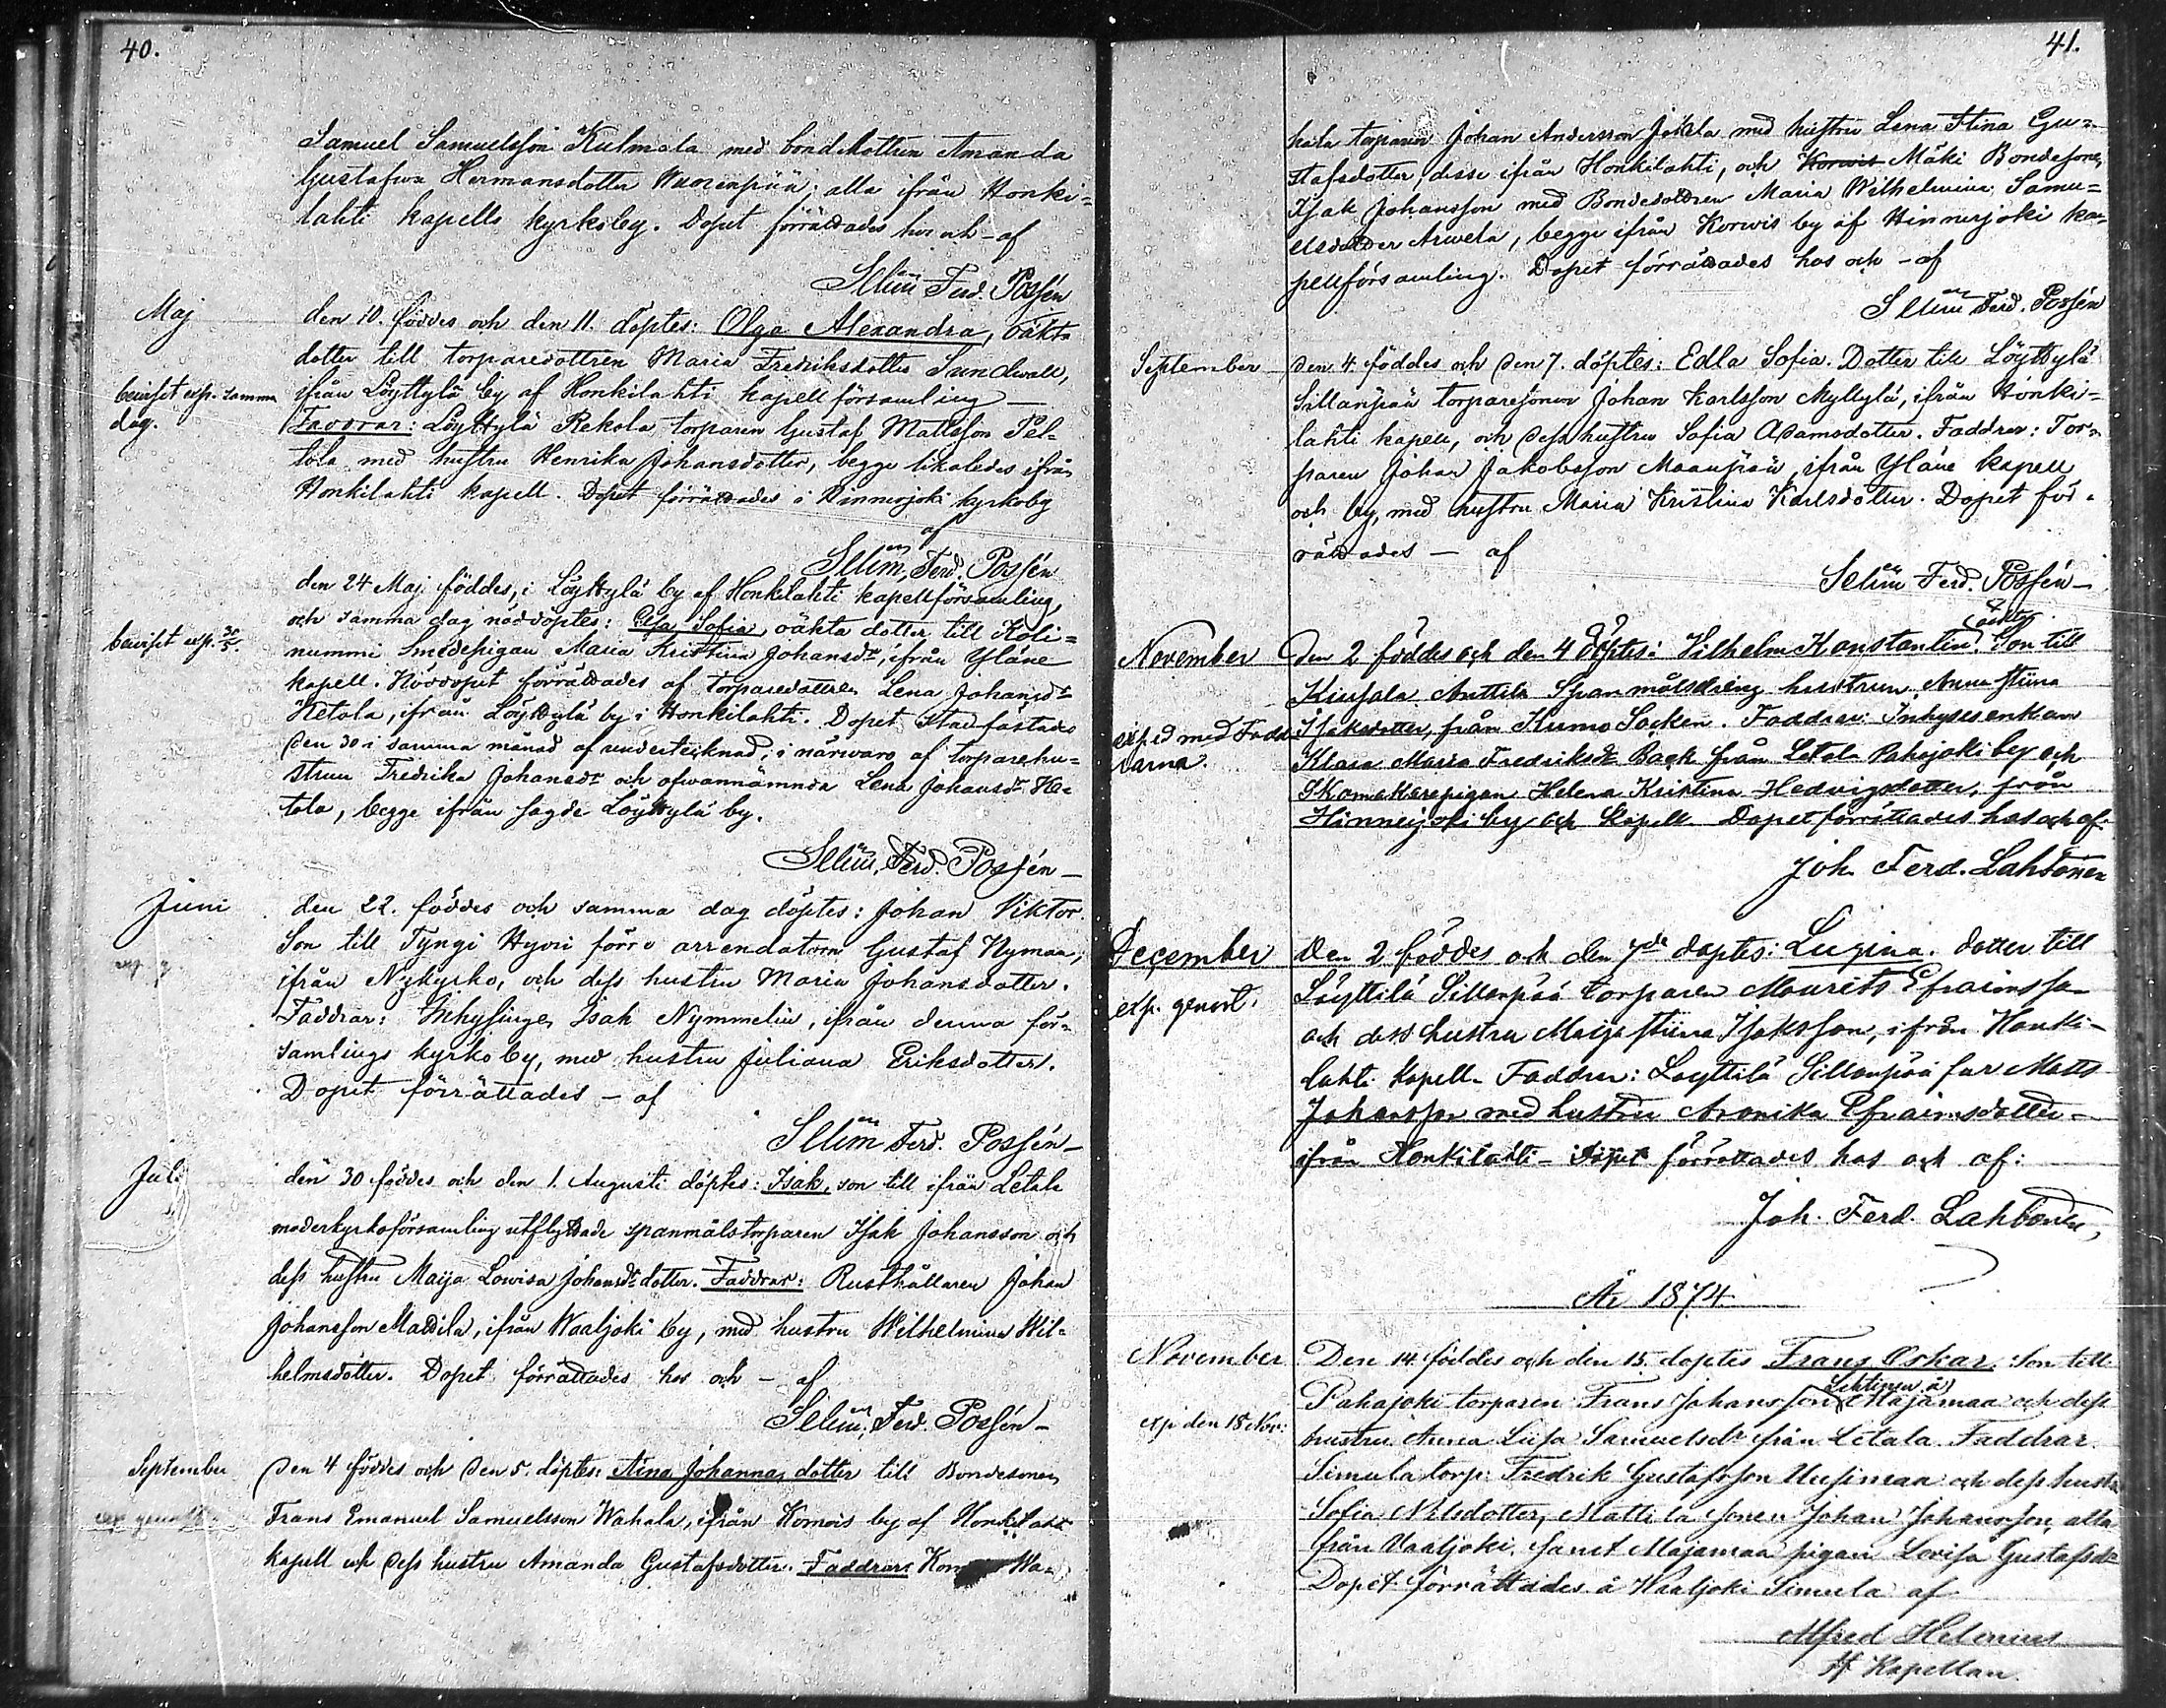 40.
Samuel Samuelsson Kulmala med bondedottren Amanda
Gustafwa Hermansdotter Wuorenpää; alla ifrån Honki=
lahti kapells kyrkoby. Dopet förrättades hos och - af
Selim Ferd. Possén
Maj
den 10. föddes och den 11. döptes: Olga Alexandra, oäkta
dotter till torparedottren Maria Fredriksdotter Sundwall,
beviset exp. samma
dag.
ifrån Löyttylä by af Honkilahti kapellförsamling —
Faddrar: Löyttylä Rekola torparen Gustaf Mattsson Pel=
tola med hustru Henrika Johansdotter, begge likaledes ifrån
Honkilahti kapell. Dopet förrättades i Hinnerjoki kyrkoby
af
Selim Ferd. Possén
den 24 Maj föddes, i Löyttylä by af Honkilahti kapellförsamling,
och samma dag nöddöptes: Sofia, oäkta dotter till Koli=
beviset exp. 30/5.
nummi Smedspigan Maria Kristina Johansdr, ifrån Yläne
kapell. Nöddopet förrättades af torparedottren Lena Johansdr
Hetola, ifrån Löyttylä by i Honkilahti. Dopet stadfästades
den 30 i samma månad af undertecknad, i närwaro af torparehu=
strun Fredrika Johansdr och ofwannämnda Lena Johansdr He=
tola, begge ifrån sagde Löyttylä by.
Selim Ferd. Possén —
Juni
den 22. föddes och samma dag döptes: Johan Viktor.
Son till Tyngi Hyvri förre arrendatorn Gustaf Nyman,
ifrån Nykyrko, och dess hustru Maria Johansdotter.
Faddrar: Inhysingen Isak Nymmelin, ifrån denna för=
samlings kyrkoby, med hustru Juliana Eriksdotter.
Dopet förrättades — af
Selim Ferd. Possén —
Juli
den 30 föddes och den 1. Augusti döptes: Isak, son till ifrån Letala
moderkyrkoförsamling utflyttade spanmålstorparen Isak Johansson och
dess hustru Maija Lowisa Johansdr dotter. Faddrar: Rusthållaren Johan
Johansson Mattila, ifrån Waaljoki by, med hustru Wilhelmina Wil=
helmsdotter. Dopet förrättades hos och — af
Selim Ferd. Possén —
September
den 4 föddes och den 5. döptes: Aina Johanna, dotter till Bondesonen
Frans Emanuel Samuelsson Wahala, ifrån Korwois by af Honkilahti
kapell och dess hustru Amanda Gustafsdotter. Faddrar: Wa=
41.
hala torparen Johan Andersson Jokela med hustru Lena Stina Gu=
stafsdotter, desse ifrån Honkilahti, och Korwis Mäki Bondesonen,
Isak Johansson med Bondedottren Maria Wilhelmina Samu=
elsdotter Arwela, begge ifrån Korwis by af Hinnerjoki ka=
pellförsamling. Dopet förrättades hos och — af
Selim Ferd. Possén
September
den 4 föddes och den 7. döptes: Edla Sofia. Dotter till Löyttylä
Sillanpää torparesonen Johan Karlsson Myllylä, ifrån Honki=
lahti kapell, och dess hustru Sofia Adamsdotter. Faddrar: Tor=
paren Johan Jakobsson Maanpää, ifrån Yläne kapell
och by, med hustru Maria Kristina Karlsdotter. Dopet för=
rättades — af
Selim Ferd. Possén —
November
oäkta
Den 2 föddes och den 4 döptes: Vilhelm Konstantin. Son till
Anttila Spanmålsdräng hustrun Anna Stiina
exped med Fadd-
rarna.
Isaksdotter, från Kumo Socken. Faddrar: Inhysesenkan
Klara Maria Fredriksdr Back från Letala Pahojoki by och
Skomakarepigan Helena Kristina Hedvigsdotter, från
Hinnerjoki by och kapell. Dopet förrättades hos och af
Joh. Ferd. Lahtonen
December
Den 2 föddes och den 7de döptes: Lugina. dotter till
exp. genast.
Löyttilä Sillanpää torparen Maurits Efraimsson
och dess hustru Maija Stiina Isaksson, ifrån Honki-
lahti Kapell. Faddrar: Löyttilä Sillanpää far Matts
Johansson med hustru Aronika Efraimsdotter
ifrån Honkilahti — Dopet förrättades hos och af:
Joh. Ferd. Lahtonen,
År 1874
November
Den 14 föddes och den 15. döptes Frans Oskar. Son till
Lehtinen å
Pahajoki torparen Frans Johansson Majamaa och dess
exp den 15 Nov:
hustru Anna Liisa Samuelsdr från Letala. Faddrar.
Simula torp: Fredrik Gustafsson Uusimaa och dess hustru
Sofia Nilsdotter, Mattila sonen Johan Johansson, alla
från Vaaljoki, samt Majamaa pigan Lovisa Gustafsdr
Dopet förrättades å Waaljoki Simula af
Alfred Helenius
Kapellan.